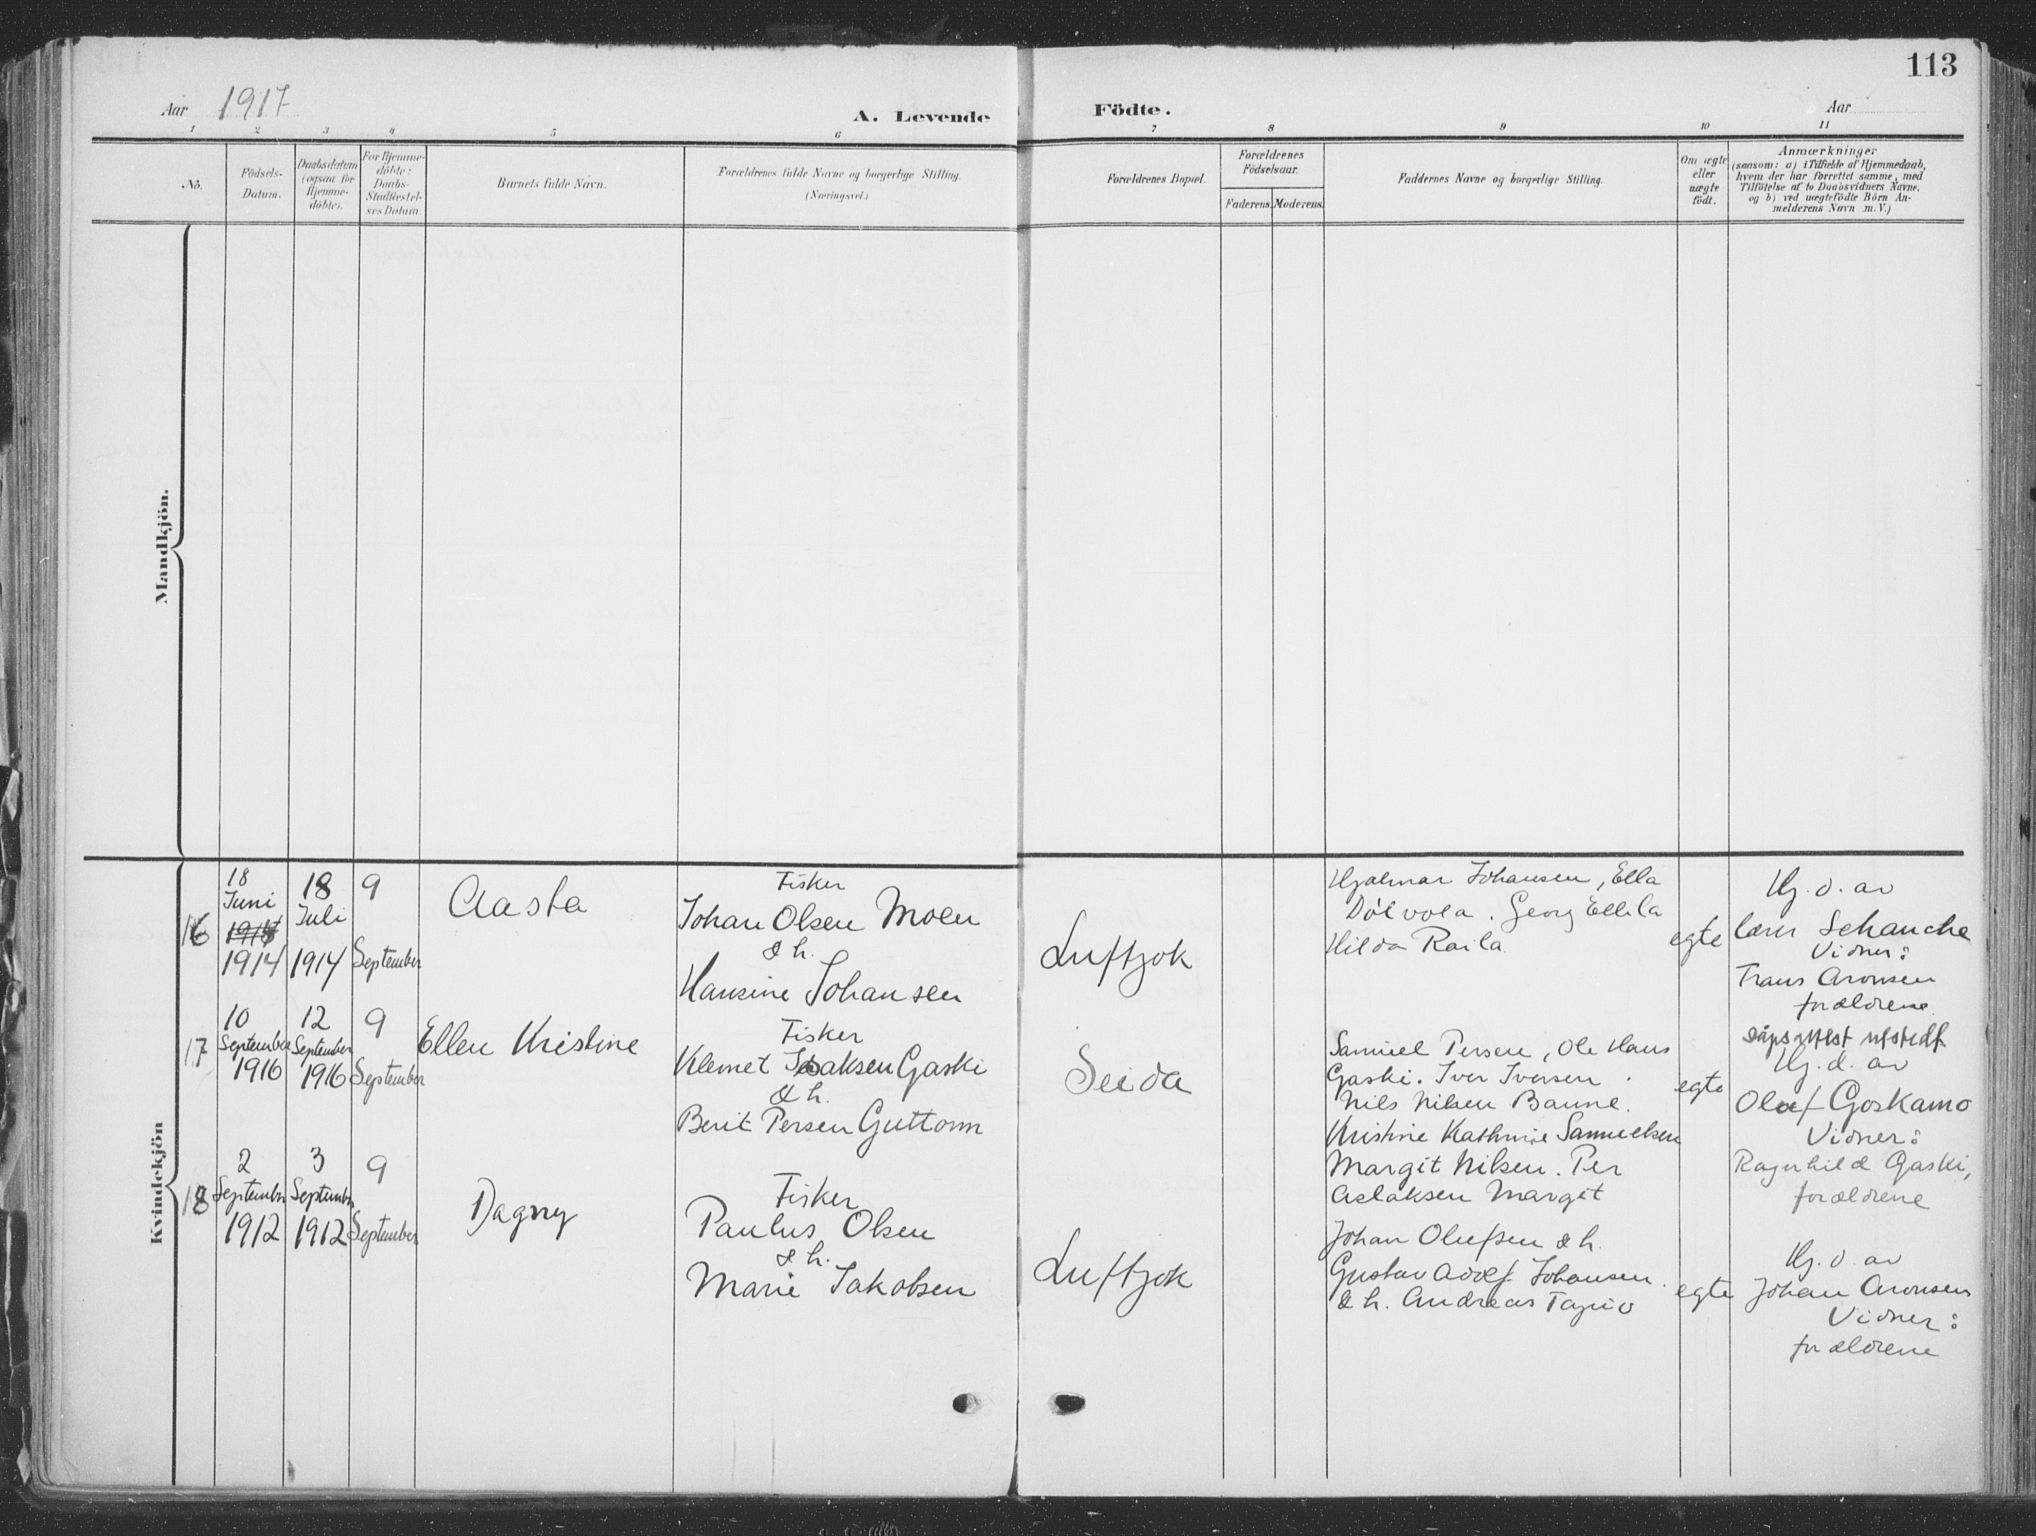 113
Aar 1917
A. Levende
Födte.
Aar
1 2 3 4 5 6 7 8 9 10 11
No.
Födsels-
Datum.
Daabsdatum
(ogsaa for
Hjemme-
döbte).
For Hjemme-
döbte:
Daabs-
Stadfestel-
ses Datum
Barnets fulde Navn.
Forældrenes fulde Navne og borgerlige Stilling.
(Næringsvei.)
Forældrenes Bopæl.
Forældrenes
Födselsaar.
Faderens.
Moderens.
Faddernes Navne og borgerlige Stilling.
Om ægte
eller
uægte
födt.
Anmærkninger
(saasom: a) i Tilfælde af Hjemmedaab,
hvem der har forrettet samme, med
Tilföielse af to Daabsvidners Navne.
og b) ved uægtefödte Börn An-
melderens Navn m. V.)
Mandkjön.
Kvindekjön
16
18
Juni
1914
18
Juli
1914
9
September
Aasta
Fisker
Johan Olsen Moen
& h.
Hansine Johansen
Luftjok
Hjalmar Johansen, Ella
Dölvola. Georg Ellila
Hilda Raila
egte
Hj. d. av
lærer Schanche
Vidner:
Frans Aronsen
forældrene
17
10
September
1916
12
September
1916
9
September
Ellen Kristine
Fisker
Klemet Isaksen Gaski
& h.
Berit Persen Guttorm
Seida
Samuel Persen, Ole Hans
Gaski. Iver Iversen.
Nils Nilsen Banne.
Kristine Kathrine Samuelsen
Margit Nilsen. Per
Aslaksen Margit
egte
dåpsattest utstedt
Hj. d. av
Olaf Goskamo
Vidner:
Ragnhild Gaski,
forældrene
18
2
September
1912
3
September
1912
9
September
Dagny
Fisker
Paulus Olsen
& h.
Marie Jakobsen
Luftjok
Johan Olufsen & h.
Gustav Adolf Johansen.
& h. Andreas Tapio
egte
Hj. d. av
Johan Aronsen
Vidner:
forældrene